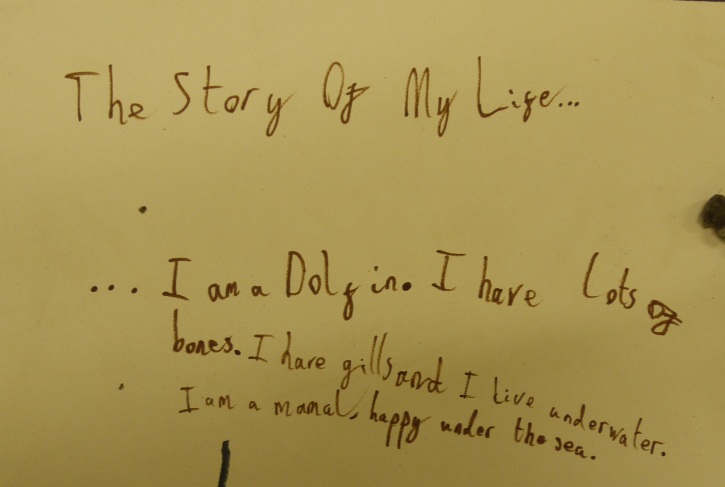 The Story Of My Life...
... I am a Dolfin. I have lots of
bones. I have gills and I live underwater.
I am a mamal, happy under the sea.